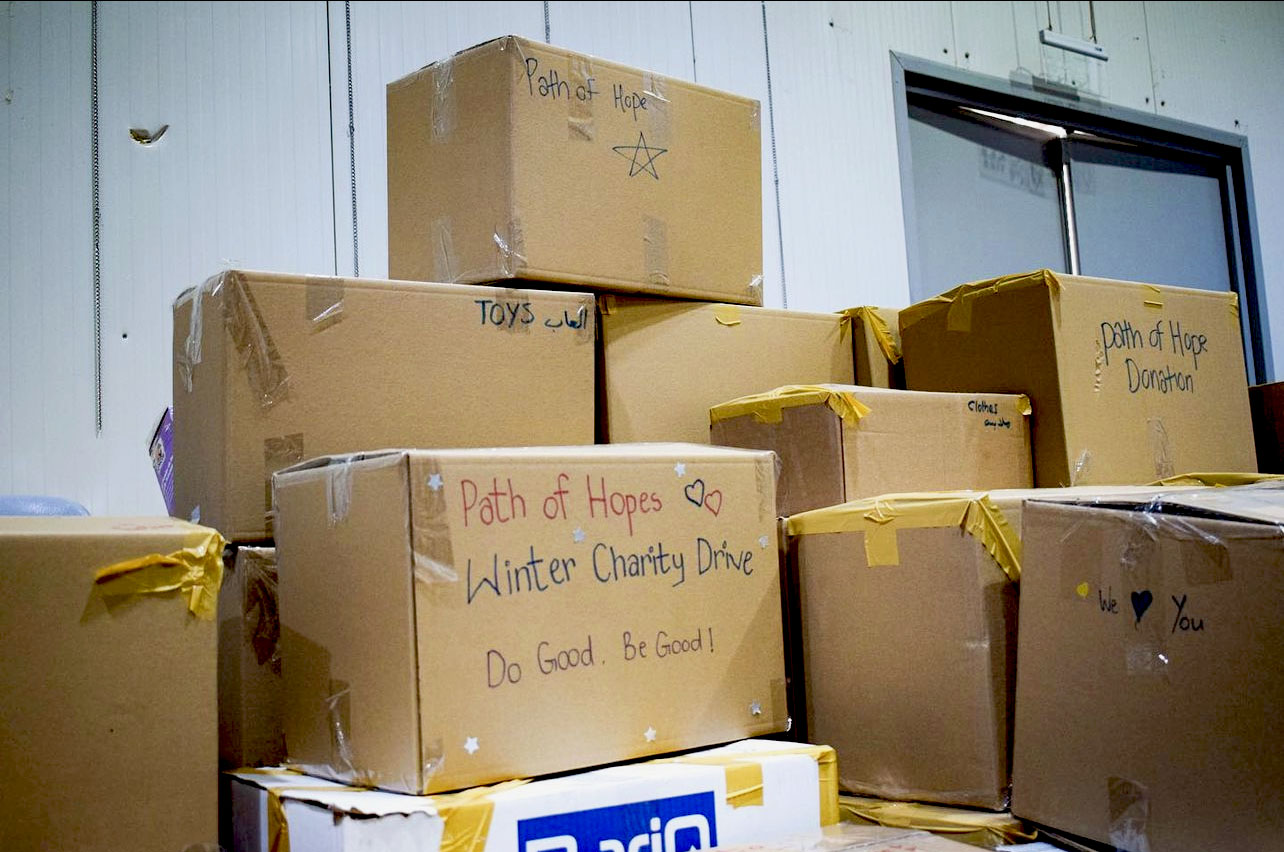 Path of Hope
TOYS العاب
path of Hope
Donation
Clothes
Path of Hopes
Winter Charity Drive
Do Good. Be Good!
We You